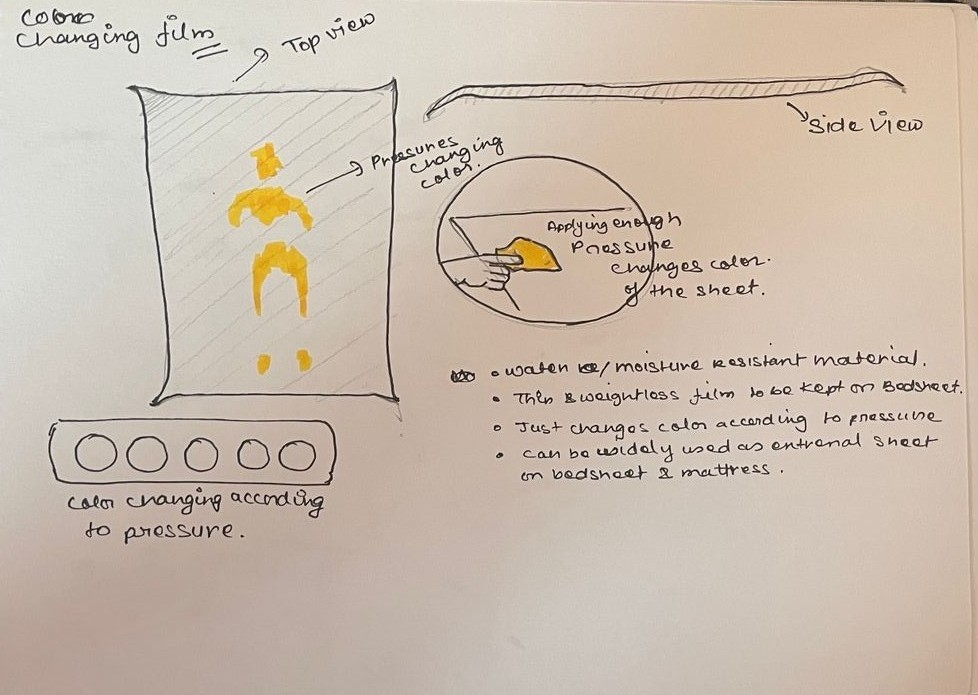 Color
changing film
Top view
Side view
Pressures
changing
color.
Applying enough
Pressure
changes color.
of the sheet.
• water /moisture resistant material.
• Thin & weightless film to be kept on Bedsheet.
• Just changes color according to pressure
• can be widely used as entrenal sheet
on bedsheet & mattress.
color changing according
to pressure.